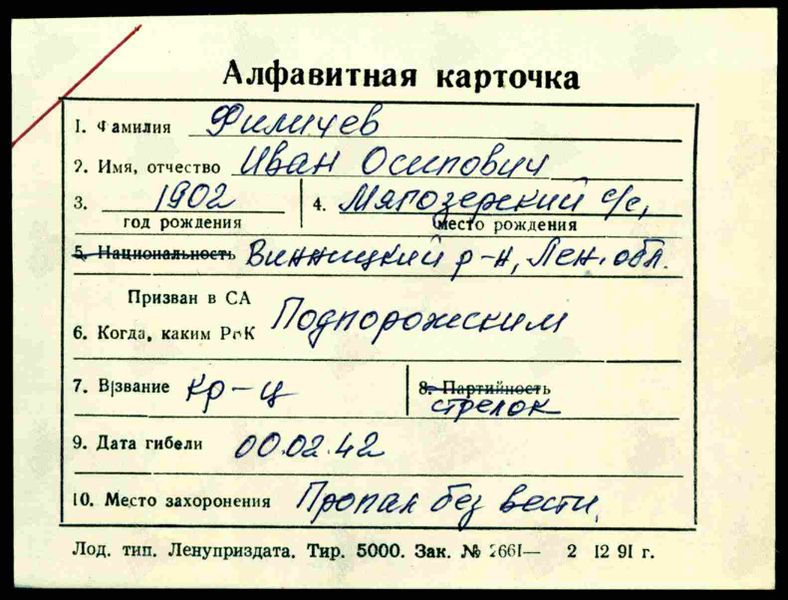 Алфавитная карточка
1. Фамилия Филичев
2. Имя, отчество Иван Осипович
3. 1902 4. Мягозерский с/с,
год рождения место рождения
5. Национальность Винницкий р-н, Лен. обл.
Призван в СА
6. Когда, каким РвК Подпорожским
7. В/звание кр-ц 8. Партийность
стрелок
9. Дата гибели 00.02.42
10. Место захоронения Пропал без вести,
Лод. тип. Ленуприздата. Тир. 5000. Зак. № 2661— 2 12 91 г.